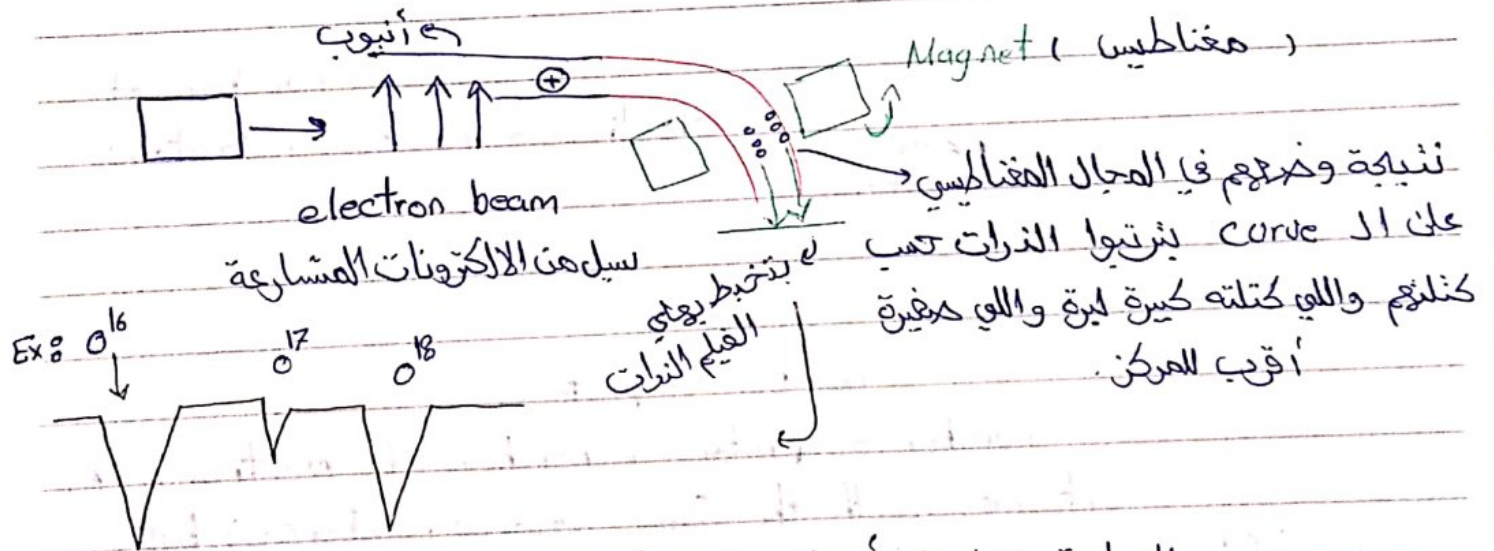 أنبوب
Magnet ( مغناطيس )
+
electron beam
سيل من الالكترونات المتسارعة
نتيجة وضعهم في المجال المغناطيسي
على ال curve بترتبوا الذرات حسب
كتلتهم واللي كتلته كبيرة لبرة واللي صغيرة
أقرب للمركز.
بتخبط بهاي
الفيلم الذرات
Ex: O¹⁶
O¹⁷
O¹⁸